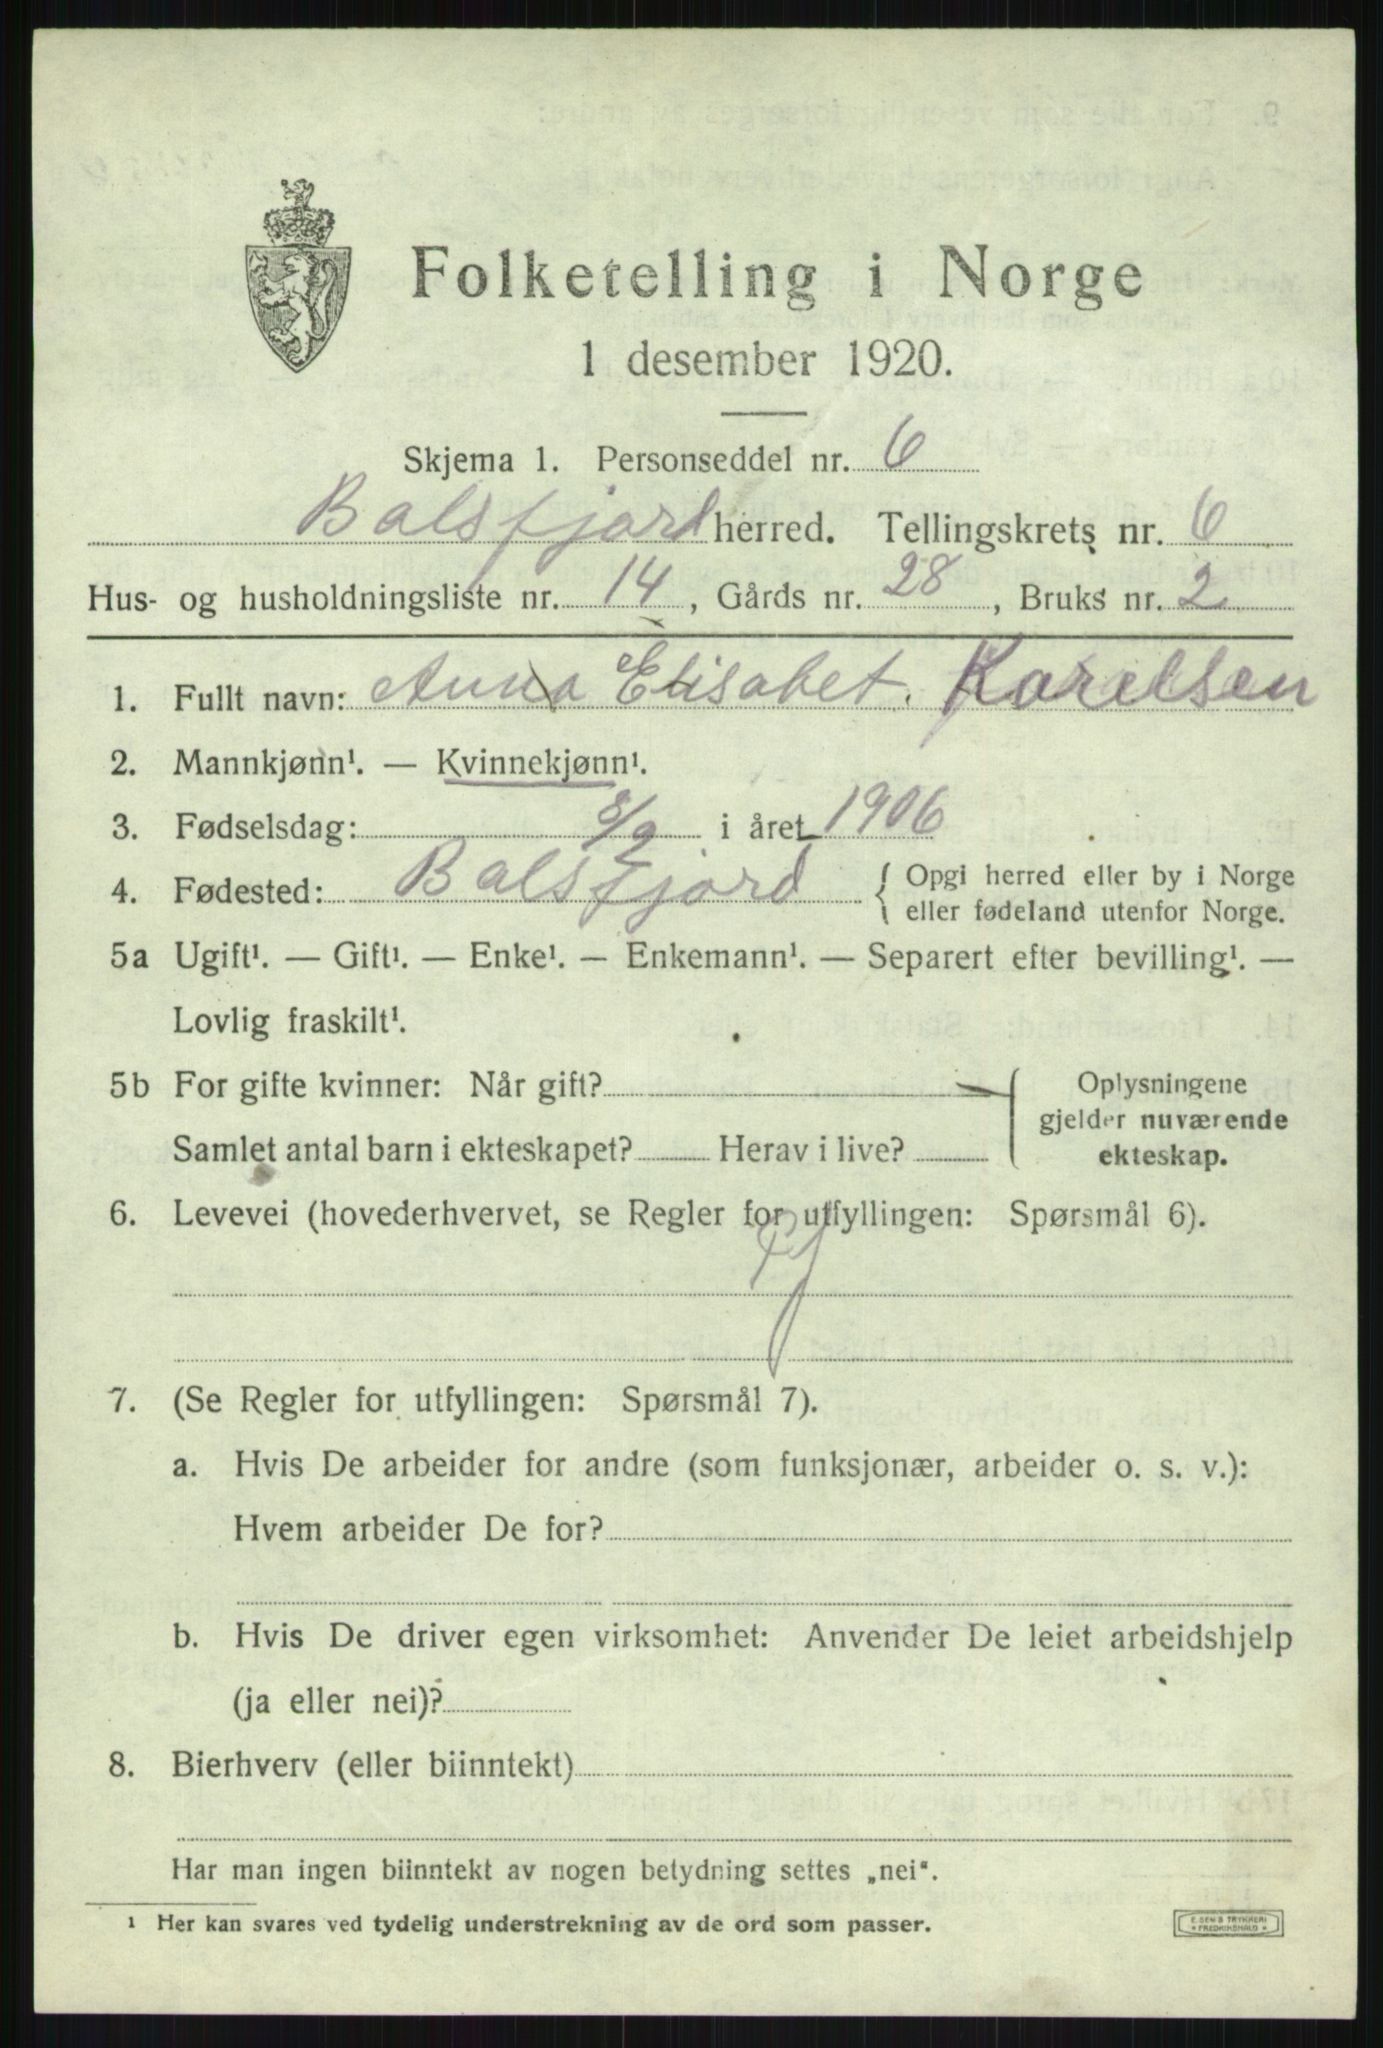 Folketelling i Norge
1 desember 1920.
Skjema 1. Personseddel nr. 6
Balsfjord herred. Tellingskrets nr. 6
Hus- og husholdningsliste nr. 14, Gårds nr. 28, Bruks nr. 2
1. Fullt navn: Anna Elisabet. Karelsen
2. Mannkjønn¹. — Kvinnekjønn¹.
3. Fødselsdag: 8/2 i året 1906
4. Fødested: Balsfjord { Opgi herred eller by i Norge
eller fødeland utenfor Norge.
5a Ugift¹. — Gift¹. — Enke¹. — Enkemann¹. — Separert efter bevilling¹. —
Lovlig fraskilt¹.
5b For gifte kvinner: Når gift? Oplysningene
gjelder nuværende
Samlet antal barn i ekteskapet? Herav i live? ekteskap.
6. Levevei (hovederhvervet, se Regler for utfyllingen: Spørsmål 6).
7. (Se Regler for utfyllingen: Spørsmål 7).
a. Hvis De arbeider for andre (som funksjonær, arbeider o. s. v.):
Hvem arbeider De for?
b. Hvis De driver egen virksomhet: Anvender De leiet arbeidshjelp
(ja eller nei)?
8. Bierhverv (eller biinntekt)
Har man ingen biinntekt av nogen betydning settes „nei“.
¹ Her kan svares ved tydelig understrekning av de ord som passer.
TRYKKERI
FREDRIKSHALD